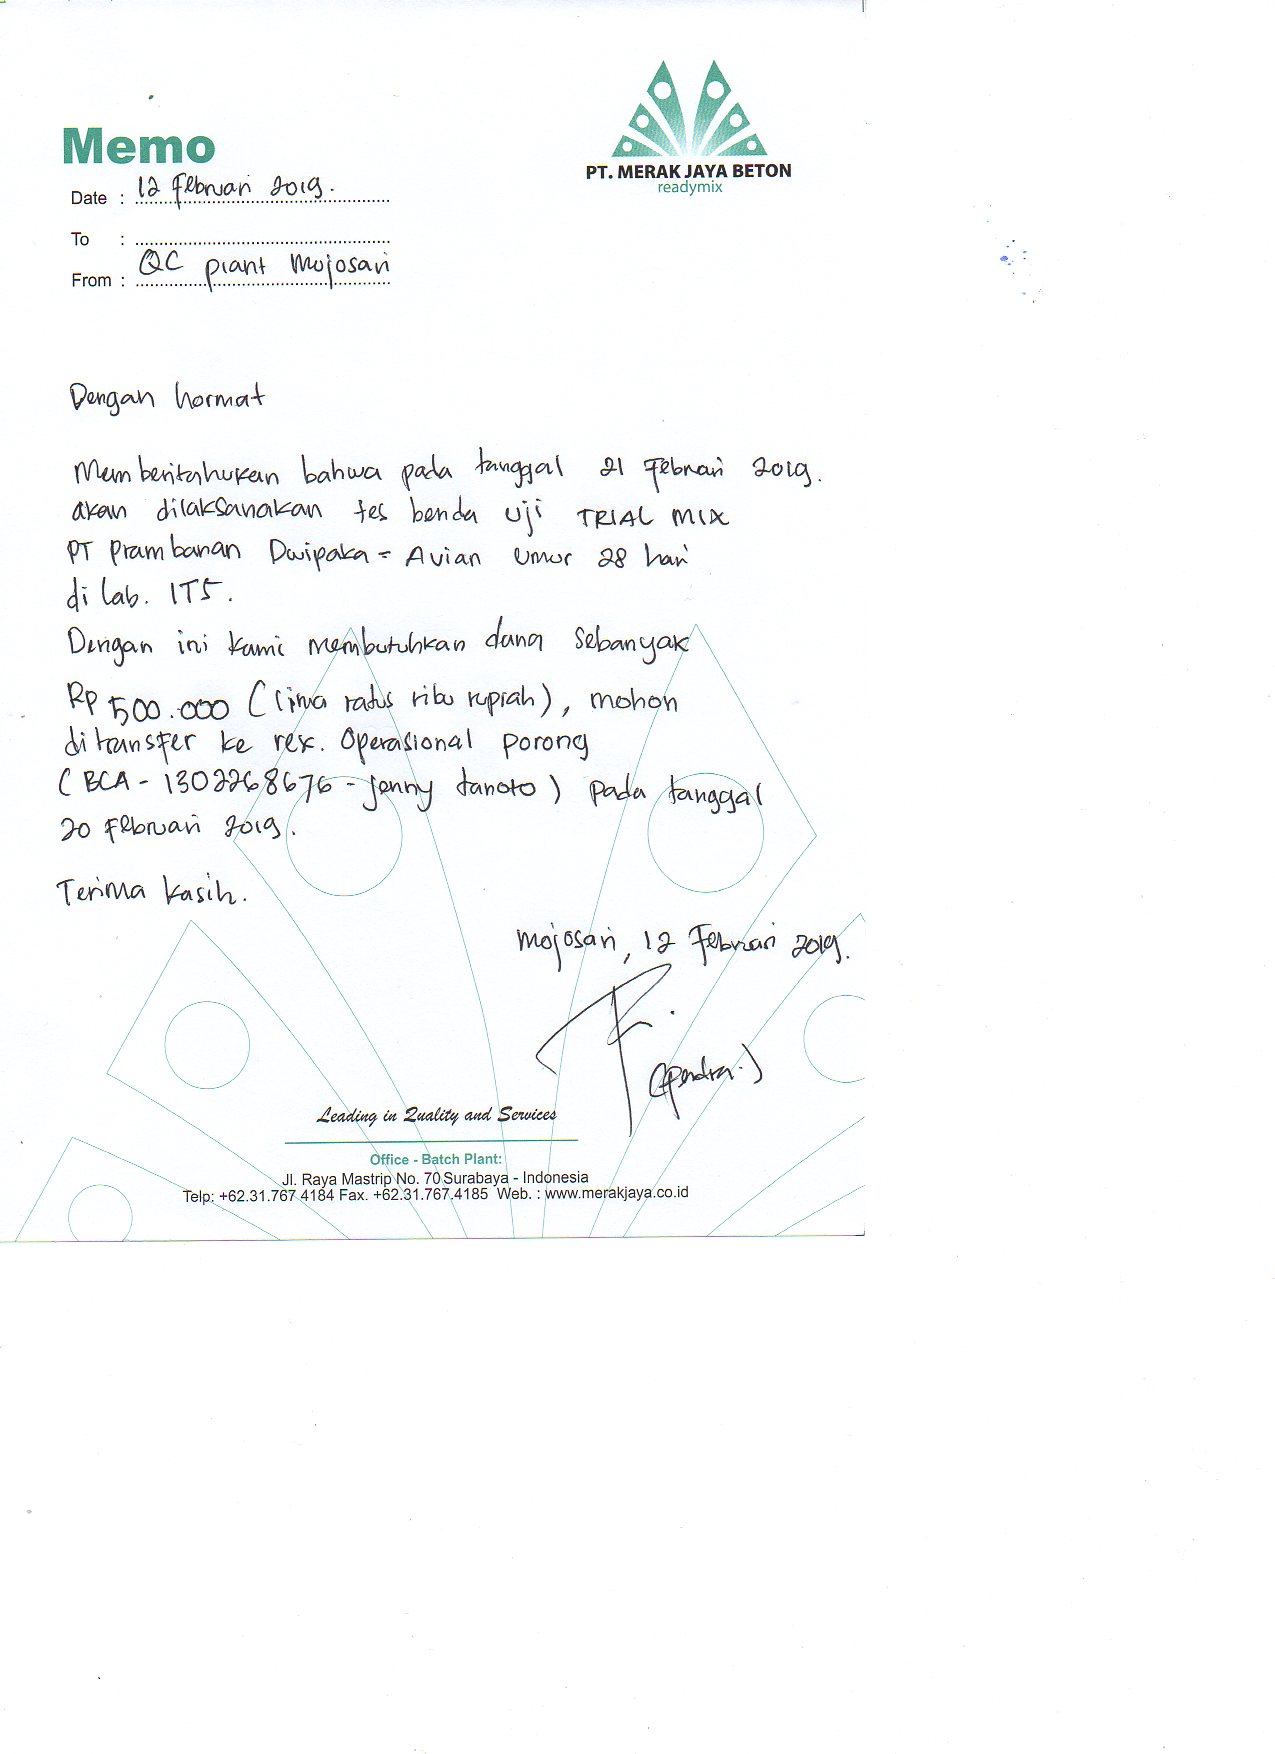 Memo
PT. MERAK JAYA BETON
readymix
Date : 12 Februari 2019.
To :
From : QC plant Mojosari
Dengan hormat
Memberitahukan bahwa pada tanggal 21 Februari 2019.
akan dilaksanakan tes benda uji TRIAL MIX
PT Prambanan Dwipaka - Avian umur 28 hari
di lab. ITS.
Dengan ini kami membutuhkan dana sebanyak
Rp 500.000 (lima ratus ribu rupiah), mohon
ditransfer ke rek. Operasional porong
(BCA - 1302268676 - Jenny tanoto) pada tanggal
20 Februari 2019.
Terima kasih.
Mojosari, 12 Februari 2019.
Leading in Quality and Services
Office - Batch Plant:
Jl. Raya Mastrip No. 70 Surabaya - Indonesia
Telp: +62.31.767 4184 Fax. +62.31.767.4185 Web. : www.merakjaya.co.id